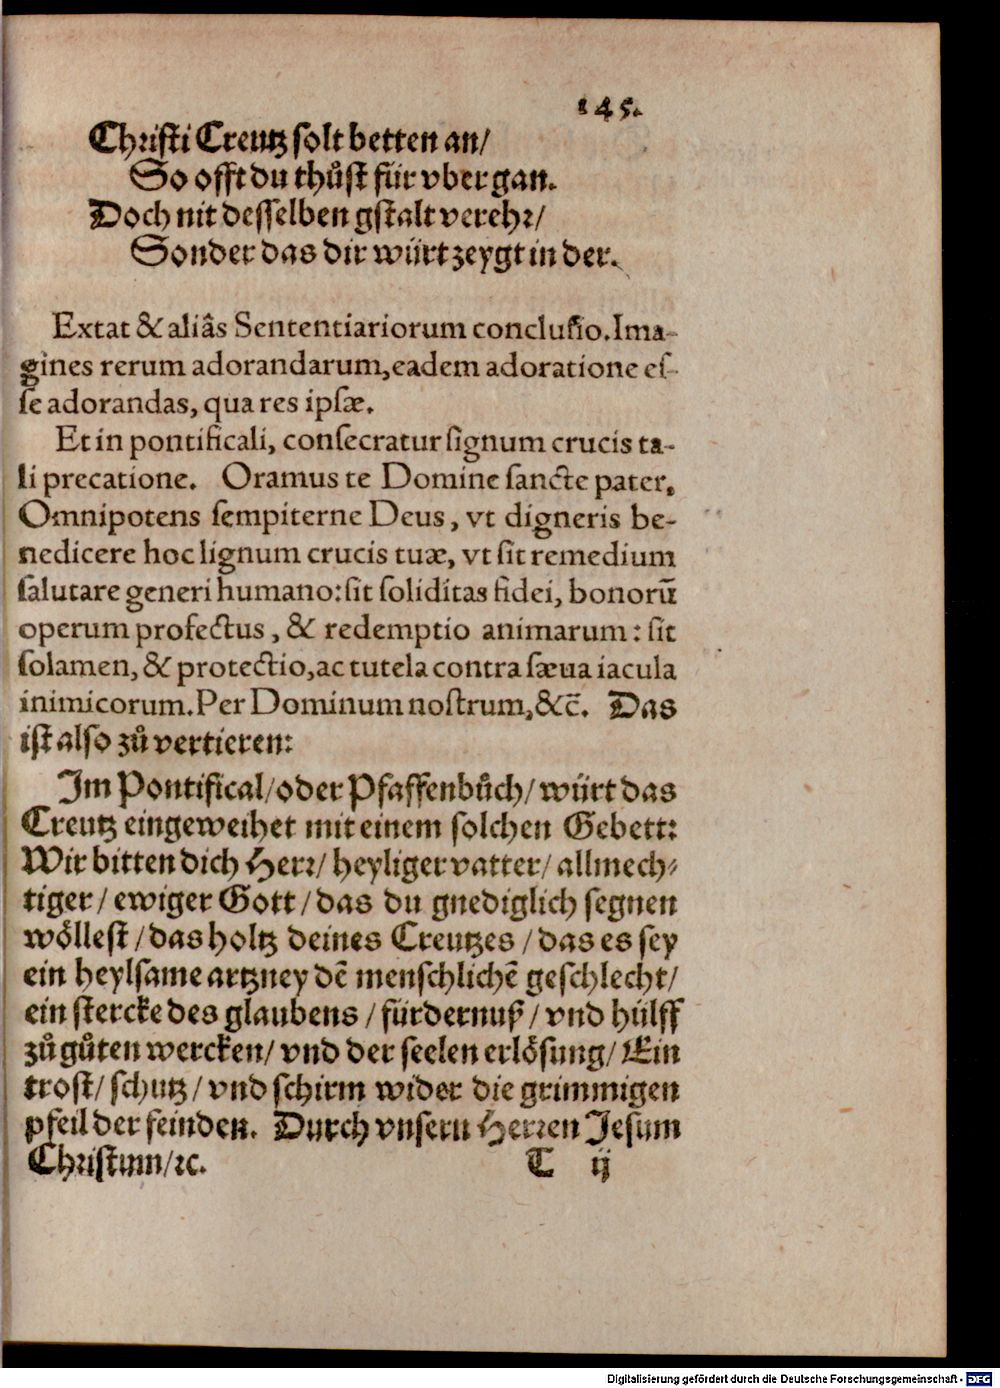 145.
Christi Creutz solt betten an/
So offt du thůst für vber gan.
Doch nit desselben gstalt verehr/
Sonder das dir würt zeygt in der.
Extat & aliâs Sententiariorum conclusio. Ima-
gines rerum adorandarum, eadem adoratione es-
se adorandas, qua res ipsæ.
Et in pontificali, consecratur signum crucis ta-
li precatione. Oramus te Domine sancte pater,
Omnipotens sempiterne Deus, vt digneris be-
nedicere hoc lignum crucis tuæ, vt sit remedium
salutare generi humano: sit soliditas fidei, bonorū
operum profectus, & redemptio animarum: sit
solamen, & protectio, ac tutela contra sæua iacula
inimicorum. Per Dominum nostrum, &c̄. Das
ist also zů vertieren:
Im Pontifical/ oder Pfaffenbůch/ würt das
Creutz eingeweihet mit einem solchen Gebett:
Wir bitten dich Herr/ heyliger vatter/ allmech-
tiger/ ewiger Gott/ das du gnediglich segnen
wöllest/ das holtz deines Creutzes/ das es sey
ein heylsame artzney dē menschlichē geschlecht/
ein stercke des glaubens/ fürdernuß/ vnd hülff
zů gůten wercken/ vnd der seelen erlösung/ Ein
trost/ schutz/ vnd schirm wider die grimmigen
pfeil der feinden. Durch vnsern Herren Jesum
Christum/ ꝛc. T ij
Digitalisierung gefördert durch die Deutsche Forschungsgemeinschaft - DFG